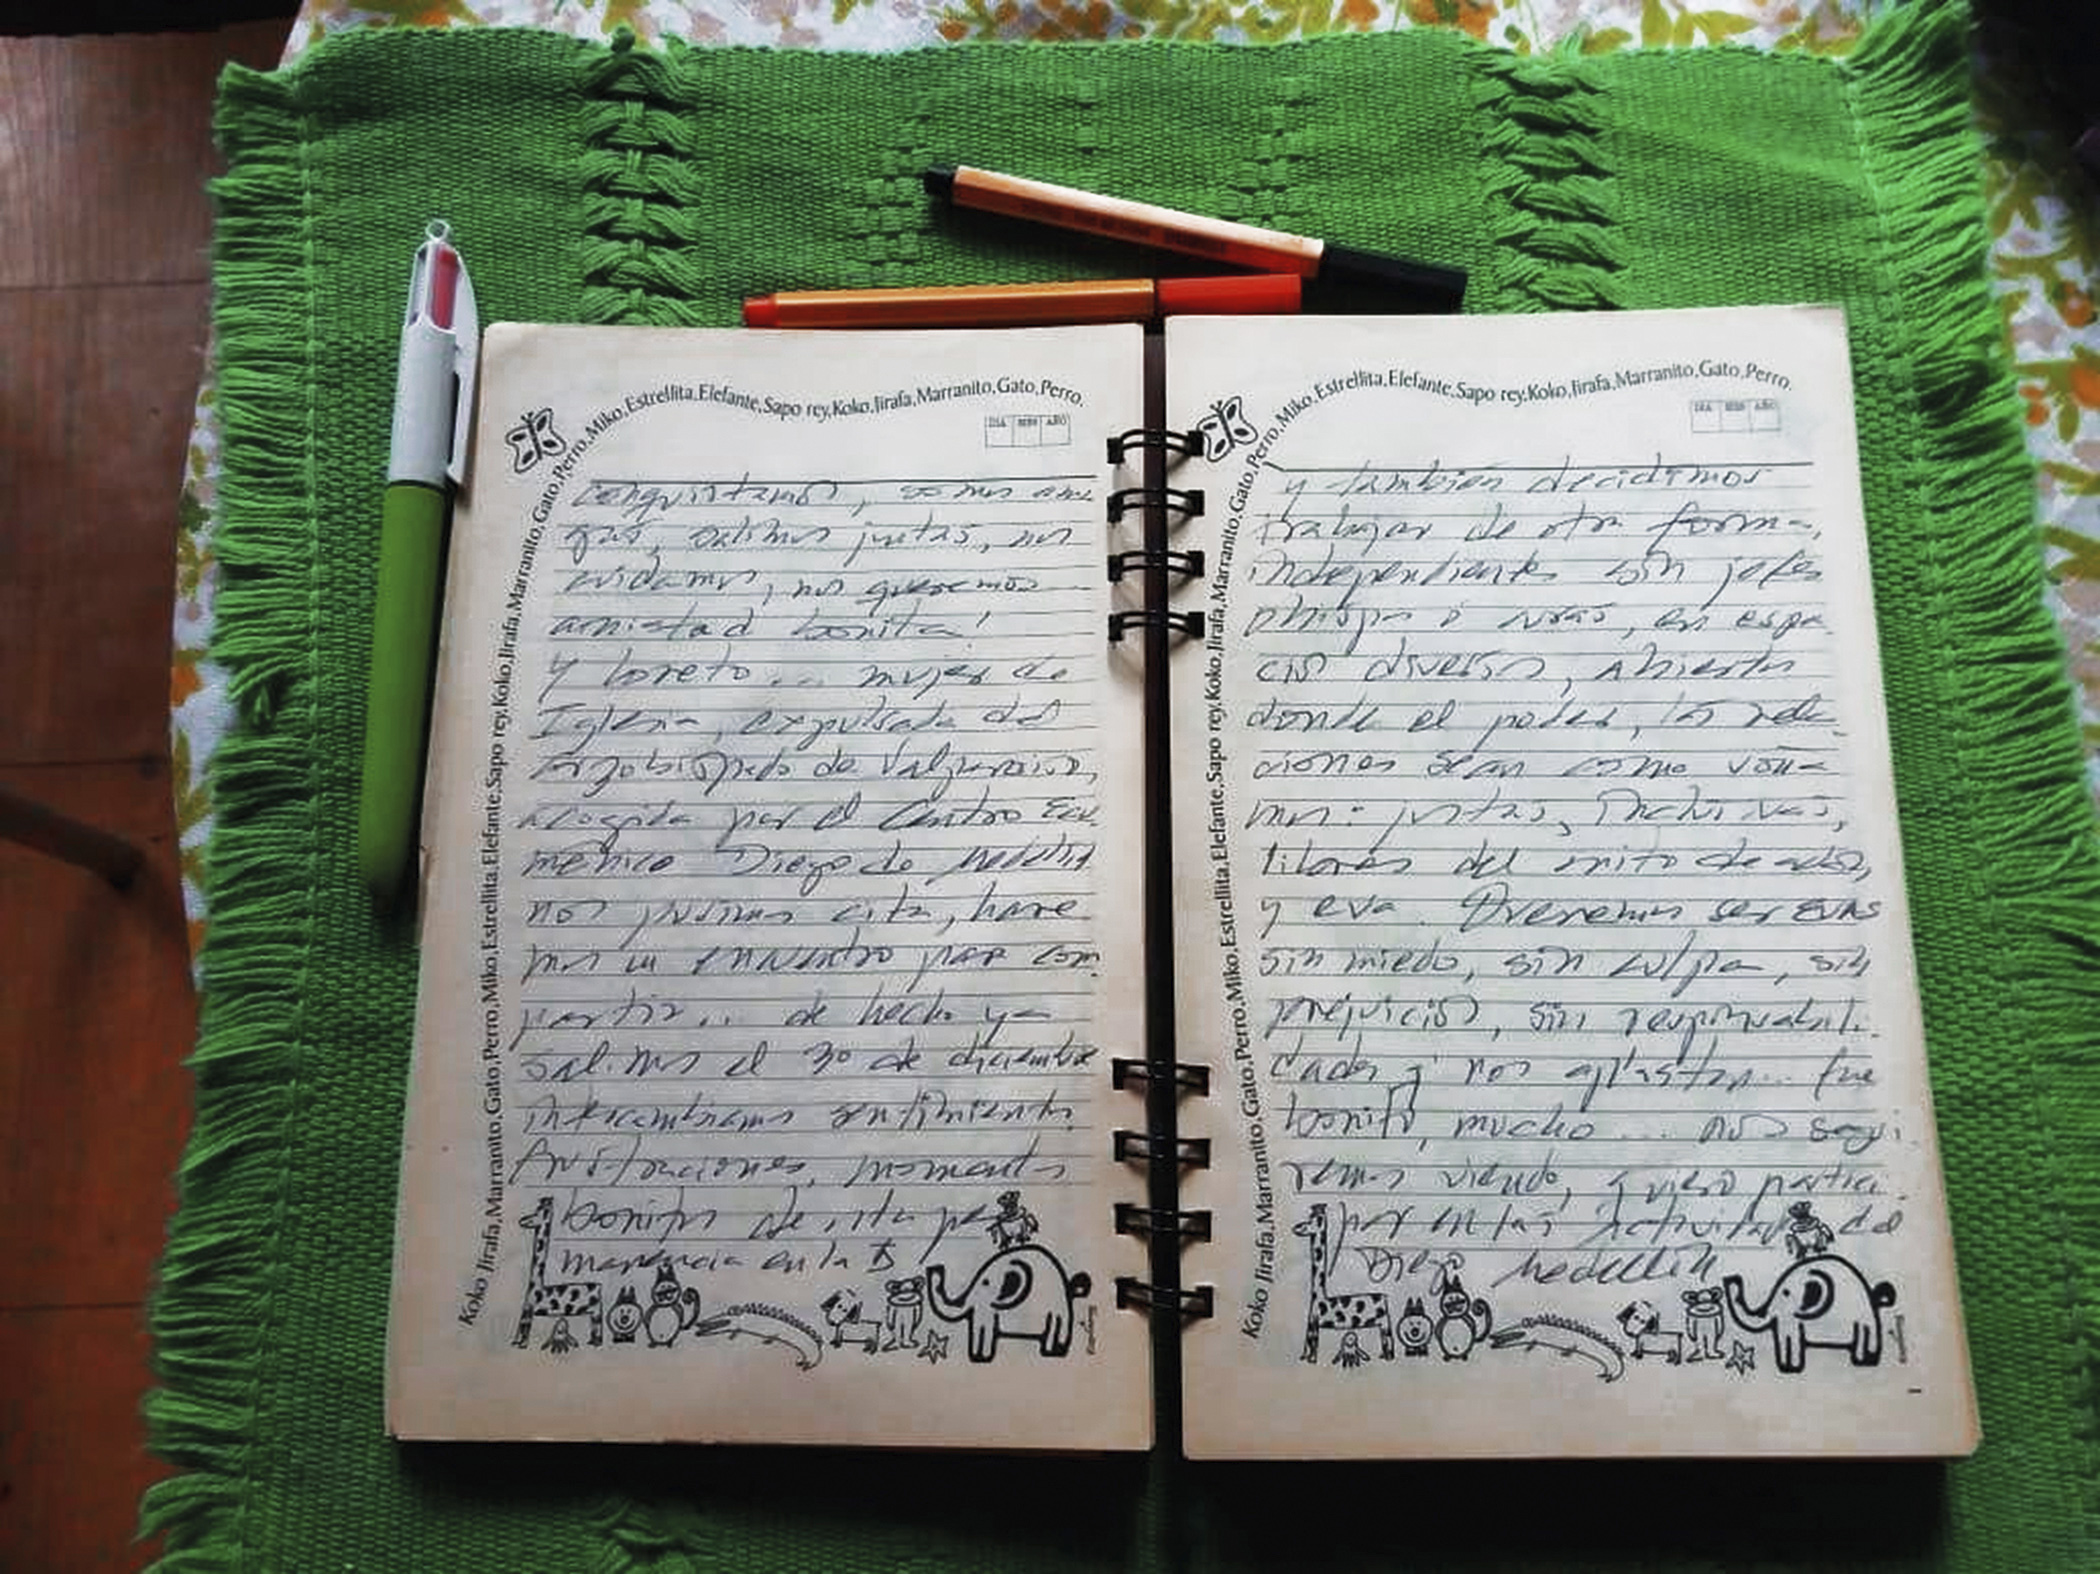 Koko Jirafa,Marranito,Gato,Perro,Miko,Estrellita,Elefante,Sapo rey,Koko,Jirafa,Marranito,Gato,Perro,Miko,Estrellita,Elefante,Sapo rey,Koko,Jirafa,Marranito,Gato,Perro.
DIA MES AÑO
conquistamos, somos ami
gas, salimos juntas, nos
cuidamos, nos queremos
amistad bonita!
y Loreto... mujer de
Iglesia, expulsada del
arzobispado de Valparaíso,
acogida por el Centro Ecu
ménico Diego de Medellín
nos pusimos cita, hare
mos un encuentro para com
partir... de hecho ya
salimos el 30 de diciembre
intercambiamos sentimientos
frustraciones, momentos
bonitos de esta per
manencia en la
Koko Jirafa,Marranito,Gato,Perro,Miko,Estrellita,Elefante,Sapo rey,Koko,Jirafa,Marranito,Gato,Perro,Miko,Estrellita,Elefante,Sapo rey,Koko,Jirafa,Marranito,Gato,Perro.
DIA MES AÑO
y también decidimos
trabajar de otra forma,
independientes sin jefes
obispos o curas, en espa
cios diversos, abiertos
donde el poder, las rela
ciones sean como soña
mos: justas, inclusivas,
libres del mito de adán,
y eva. Queremos ser EVAS
sin miedo, sin culpa, sin
prejuicios, sin responsabili
dades q' nos aplastan... fue
bonito, mucho... nos segui
remos viendo, quiero partici
par en las actividades del
Diego Medellín